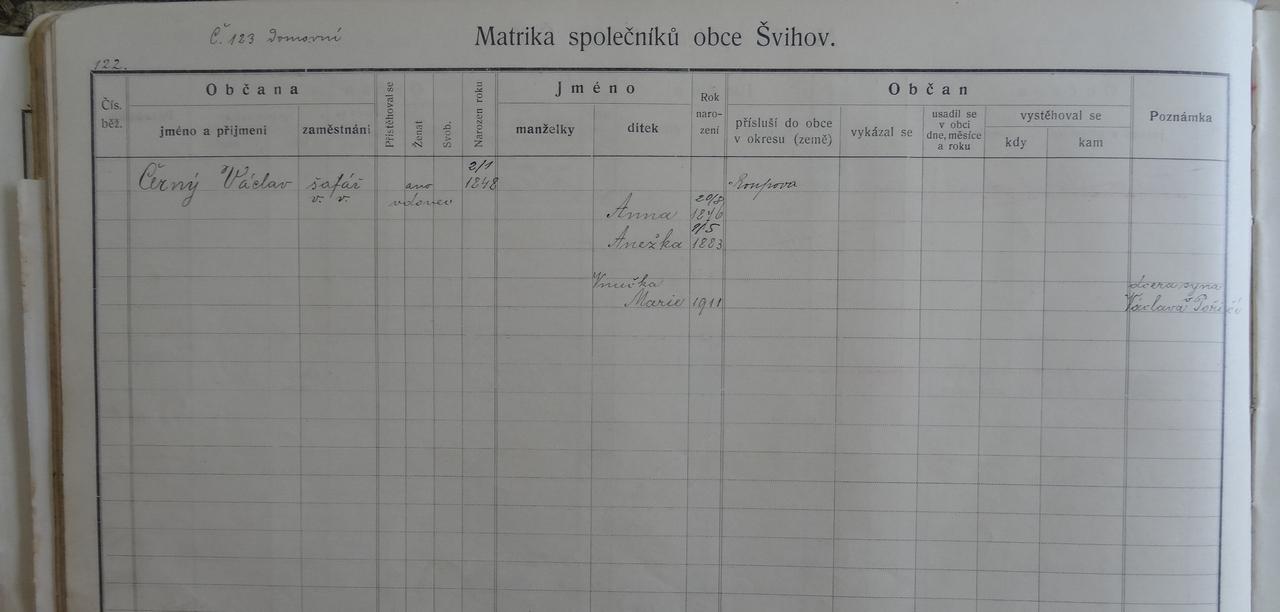 Č. 123 Domovní
Matrika společníků obce Švihov.
122.
Čís. běž.
Občana
jméno a příjmení
zaměstnání
Přistěhoval se
Ženat
Svob.
Narozen roku
Jméno
manželky
dítek
Rok naro- zení
Občan
přísluší do obce v okresu (země)
vykázal se
usadil se v obci dne, měsíce a roku
vystěhoval se
kdy
kam
Poznámka
2/1
Černý Václav šafář ano 1848 Roupova
v. v. vdovec
Anna 1876
Anežka 1883
Vnučka dcera syna
Marie 1911 Václava